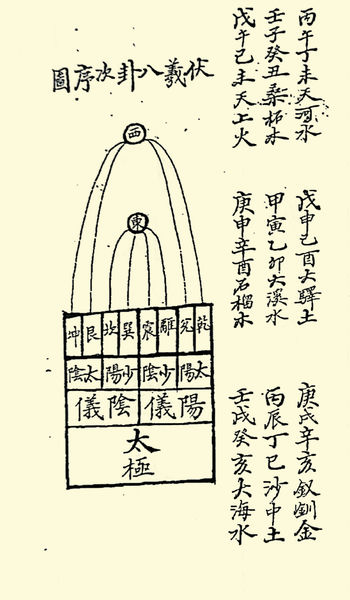 丙午丁未天河水 戊申己酉大驛土 庚戌辛亥釵釧金
壬子癸丑桑柘木 甲寅乙卯大溪水 丙辰丁巳沙中土
戊午己未天上火 庚申辛酉石榴木 壬戌癸亥大海水
伏羲八卦次序圖
西
東
乾兌離震巽坎艮坤
太陽少陰少陽太陰
陽儀陰儀
太
極